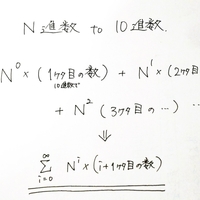 N進数 to 10進数.
N⁰×(1ケタ目の数) + N¹×(2ケタ目
10進数で
+ N² (3ケタ目の…) …
⇓
∞
Σ Nⁱ×(i+1ケタ目の数)
i=0